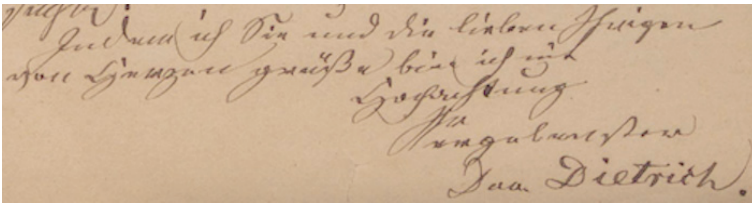 Indem ich Sie und die lieben Ihrigen
von Herzen grüße bin ich mit
Hochachtung
Ihr
ergebenster
Dav. Dietrich.